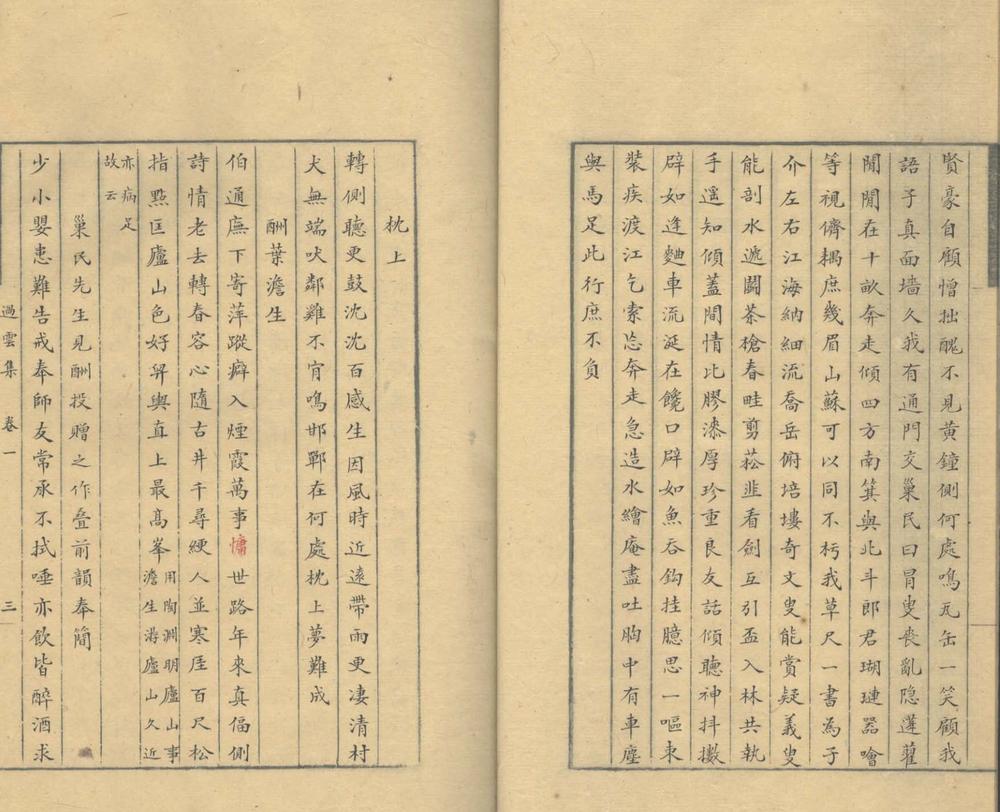 賢豪自顧憎拙醜不見黃鐘側何處鳴瓦缶一笑顧我
語子真面墻久我有通門交巢民曰冒叟喪亂隱蓬藋
聞聞在十畝奔走傾四方南箕與北斗郎君瑚璉器噲
等視儕耦庶幾眉山蘇可以同不朽我草尺一書為子
介左右江海納細流喬岳俯培塿奇文叟能賞疑義叟
能剖水遞鬭茶槍春畦剪菘韭看劍互引盃入林共執
手遥知傾蓋間情比膠漆厚珍重良友話傾聽神抖擻
辟如逢麯車流涎在饞口辟如魚吞鈎挂臆思一嘔束
裝疾渡江乞索忩奔走急造水繪庵盡吐胸中有車塵
與馬足此行庶不負
枕上
轉側聽更鼓沈沈百感生因風時近遠帶雨更凄清村
犬無端吠鄰雞不肯鳴邯鄲在何處枕上夢難成
酬葉澹生
伯通廡下寄萍蹤癖入煙霞萬事慵世路年來真偪側
詩情老去轉春容心隨古井千尋綆人並寒厓百尺松
指點匡廬山色好舁輿直上最高峯用陶淵明廬山事澹生游廬山久近
亦病足故云
巢民先生見酬投贈之作叠前韻奉簡
少小嬰患難告戒奉師友常承不拭唾亦飲皆醉酒求
過雲集 卷一 三